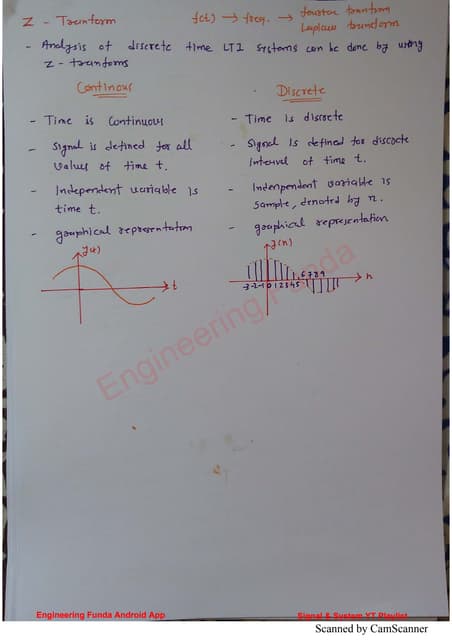 Z - Transform
f(t) → freq. → fourier transform
Laplace transform
- Analysis of discrete time LTI systems can be done by using
Z - transforms
Continous
- Time is continuous
- Signal is defined for all
values of time t.
- Independent variable is
time t.
- graphical representation
f(t)
t
Discrete
- Time is discrete
- Signal is defined for discrete
Interval of time t.
- Indenpendent variable is
sample, denoted by n.
- graphical representation
f(n)
-3 -2 -1 0 1 2 3 4 5 6 7 8 9
n
Engineering Funda
Engineering Funda Android App
Signal & System YT Playlist
Scanned by CamScanner